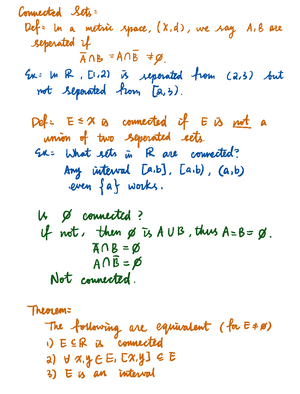 Connected Sets:
Def: In a metric space, (X,d), we say A,B are
seperated if
A̅∩B = A∩B̅ ≠∅.
Ex: In R, [1,2) is seperated from (2,3) but
not seperated from [2,3).
Def: E⊆X is connected if E is not a
union of two seperated sets.
Ex: What sets in R are connected?
Any interval [a,b], [a,b), (a,b)
even {a} works.
Is ∅ connected?
If not, then ∅ is A∪B, thus A=B=∅.
A̅∩B=∅
A∩B̅=∅
Not connected.
Theorem:
The following are equivalent (for E≠∅)
1) E⊆R is connected
2) ∀x,y∈E, [x,y]∈E
3) E is an interval